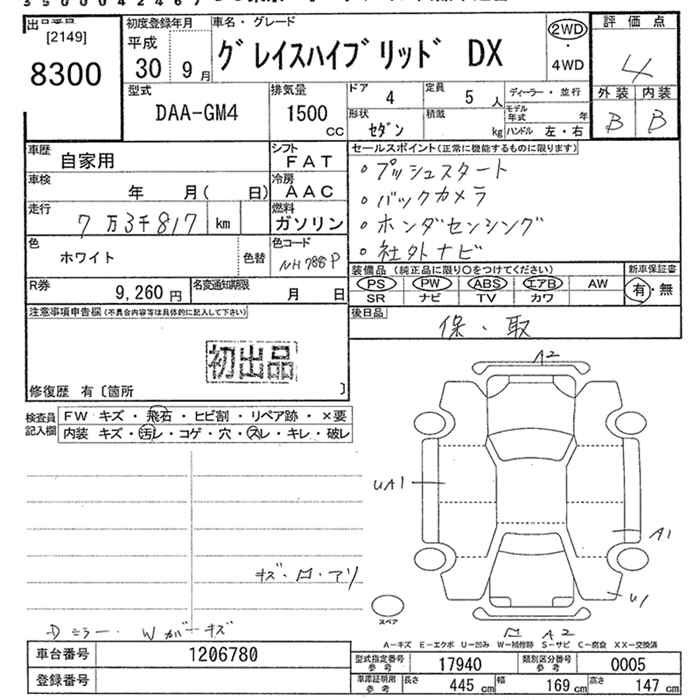 出品番号
[2149]
8300
初度登録年月
平成
30 9月
車名・グレード
グレイスハイブリッド DX
2WD
・
4WD
評価点
4
外装 内装
B B
型式
DAA-GM4
排気量
1500
CC
ドア 4
定員 5人
形状 セダン
積載 kg
ディーラー・並行
モデル年式 年
ハンドル 左・右
車歴 自家用
シフト FAT
車検 年 月( 日)
冷房 AAC
走行 7万3千817 km
燃料 ガソリン
色 ホワイト
色替
色コード NH788P
R券 9,260円
名変通知期限 月 日
セールスポイント(正常に機能するものに限ります)
。プッシュスタート
。バックカメラ
。ホンダセンシング
。社外ナビ
装備品 (純正品に限り○をつけてください)
PS PW ABS エアB AW
SR ナビ TV カワ
新車保証書
有・無
後日品
保・取
注意事項申告欄(不具合内容等は具体的に記入して下さい)
初出品
修復歴 有〔箇所 〕
検査員記入欄
FW キズ・飛石・ヒビ割・リペア跡・×要
内装 キズ・汚レ・コゲ・穴・スレ・キレ・破レ
キズ・ロ・アリ
Dミラー・Wガーキズ
A2
UA1
A1
U1
スペア
A2
A-キズ E-エクボ U-凹み W-補修跡 S-サビ C-腐食 XX-交換済
車台番号 1206780
登録番号
型式指定番号参考 17940
類別区分番号参考 0005
車庫証明用参考
長さ 445cm
幅 169cm
高さ 147cm